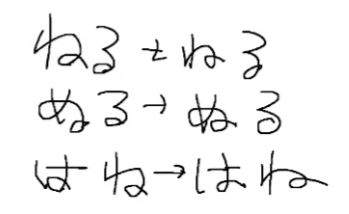 ねる→ねる
ぬる→ぬる
はね→はね